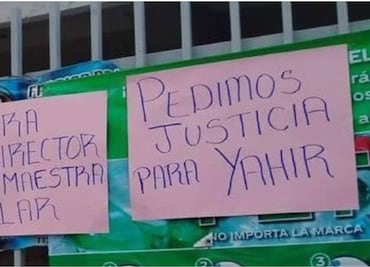 RA
DIRECTOR
MAESTRA
LAR
PEDIMOS
JUSTICIA
PARA YAHIR
EL
NO IMPORTA LA MARCA
1
2
3